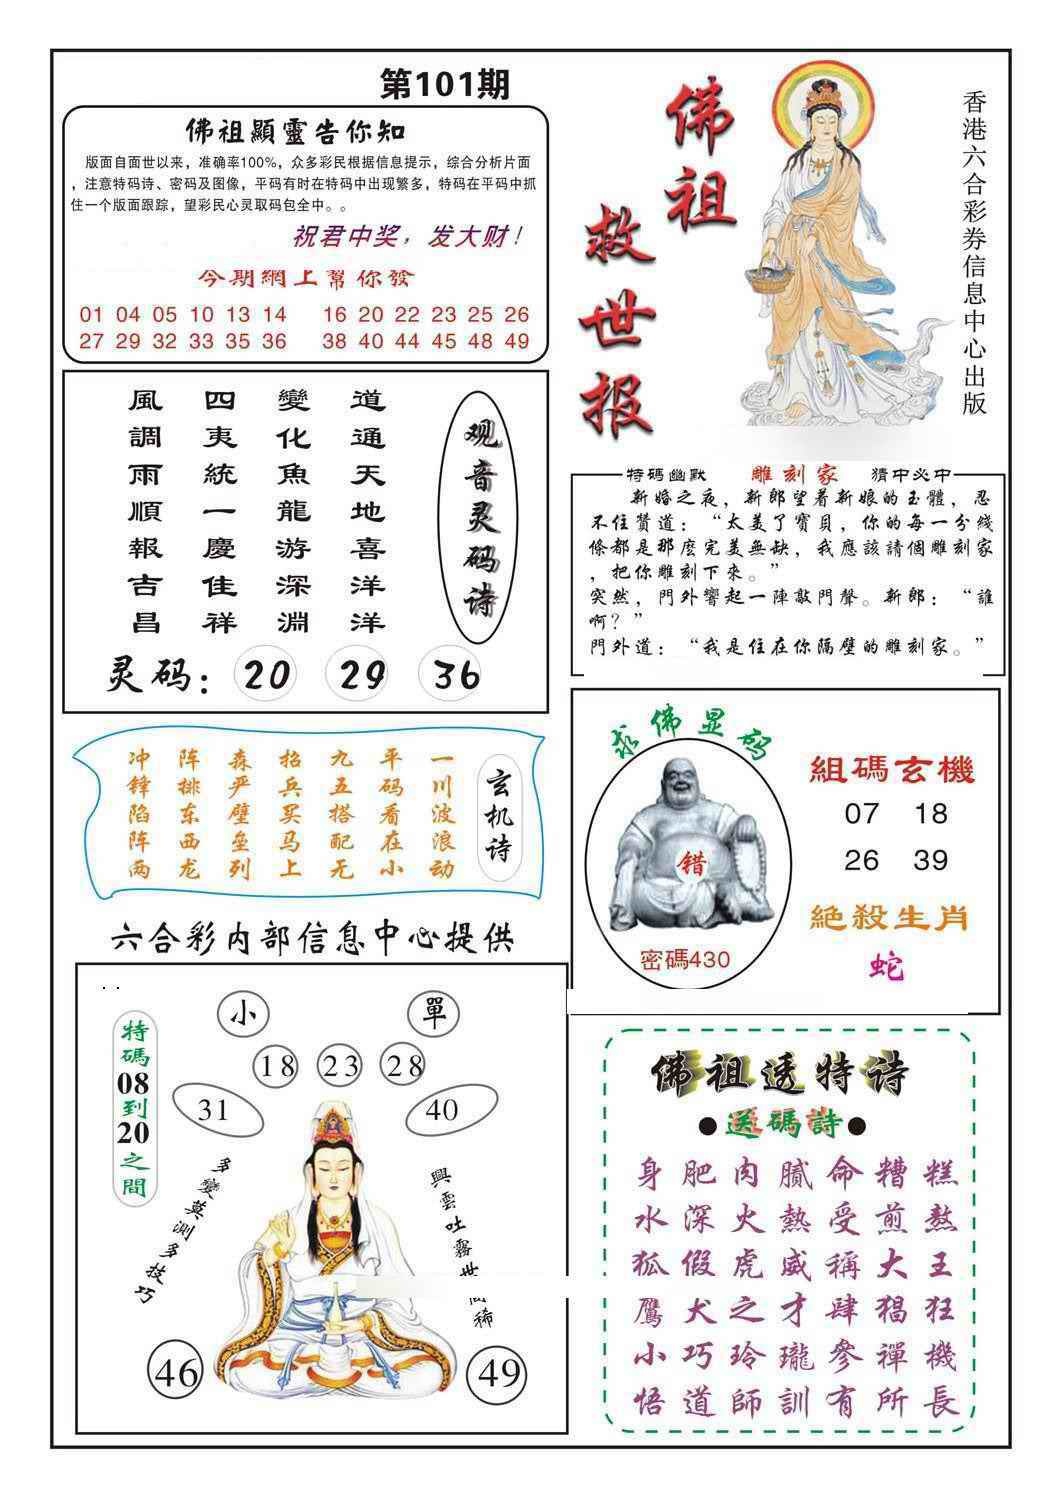 第101期
佛祖顯靈告你知
版面自面世以来，准确率100%，众多彩民根据信息提示，综合分析片面
，注意特码诗、密码及图像，平码有时在特码中出现繁多，特码在平码中抓
住一个版面跟踪，望彩民心灵取码包全中。。
祝君中奖，发大财！
今期網上幫你發
01 04 05 10 13 14 16 20 22 23 25 26
27 29 32 33 35 36 38 40 44 45 48 49
佛祖
救世报
香港六合彩券信息中心出版
观音灵码诗
道通天地喜洋洋
變化魚龍游深淵
四夷統一慶佳祥
風調雨順報吉昌
灵码：20 29 36
特码幽默 雕刻家 猜中必中
新婚之夜，新郎望着新娘的玉體，忍
不住贊道：“太美了寶貝，你的每一分綫
條都是那麽完美無缺，我應該請個雕刻家
，把你雕刻下來。”
突然，門外響起一陣敲門聲。新郎：“誰
啊？”
門外道：“我是住在你隔壁的雕刻家。”
玄机诗
一川波浪动
平码看在小
九五搭配无
招兵买马上
森严壁垒列
阵排东西龙
冲锋陷阵两
求佛显码
错
密碼430
組碼玄機
07 18
26 39
絕殺生肖
蛇
六合彩内部信息中心提供
特碼08到20之間
小 單
18 23 28
31 40
多變莫測多技巧
興雲吐霧世
稀
46 49
佛祖透特诗
●送碼詩●
身肥肉膩命糟糕
水深火熱受煎熬
狐假虎威稱大王
鷹犬之才肆猖狂
小巧玲瓏參禪機
悟道師訓有所長